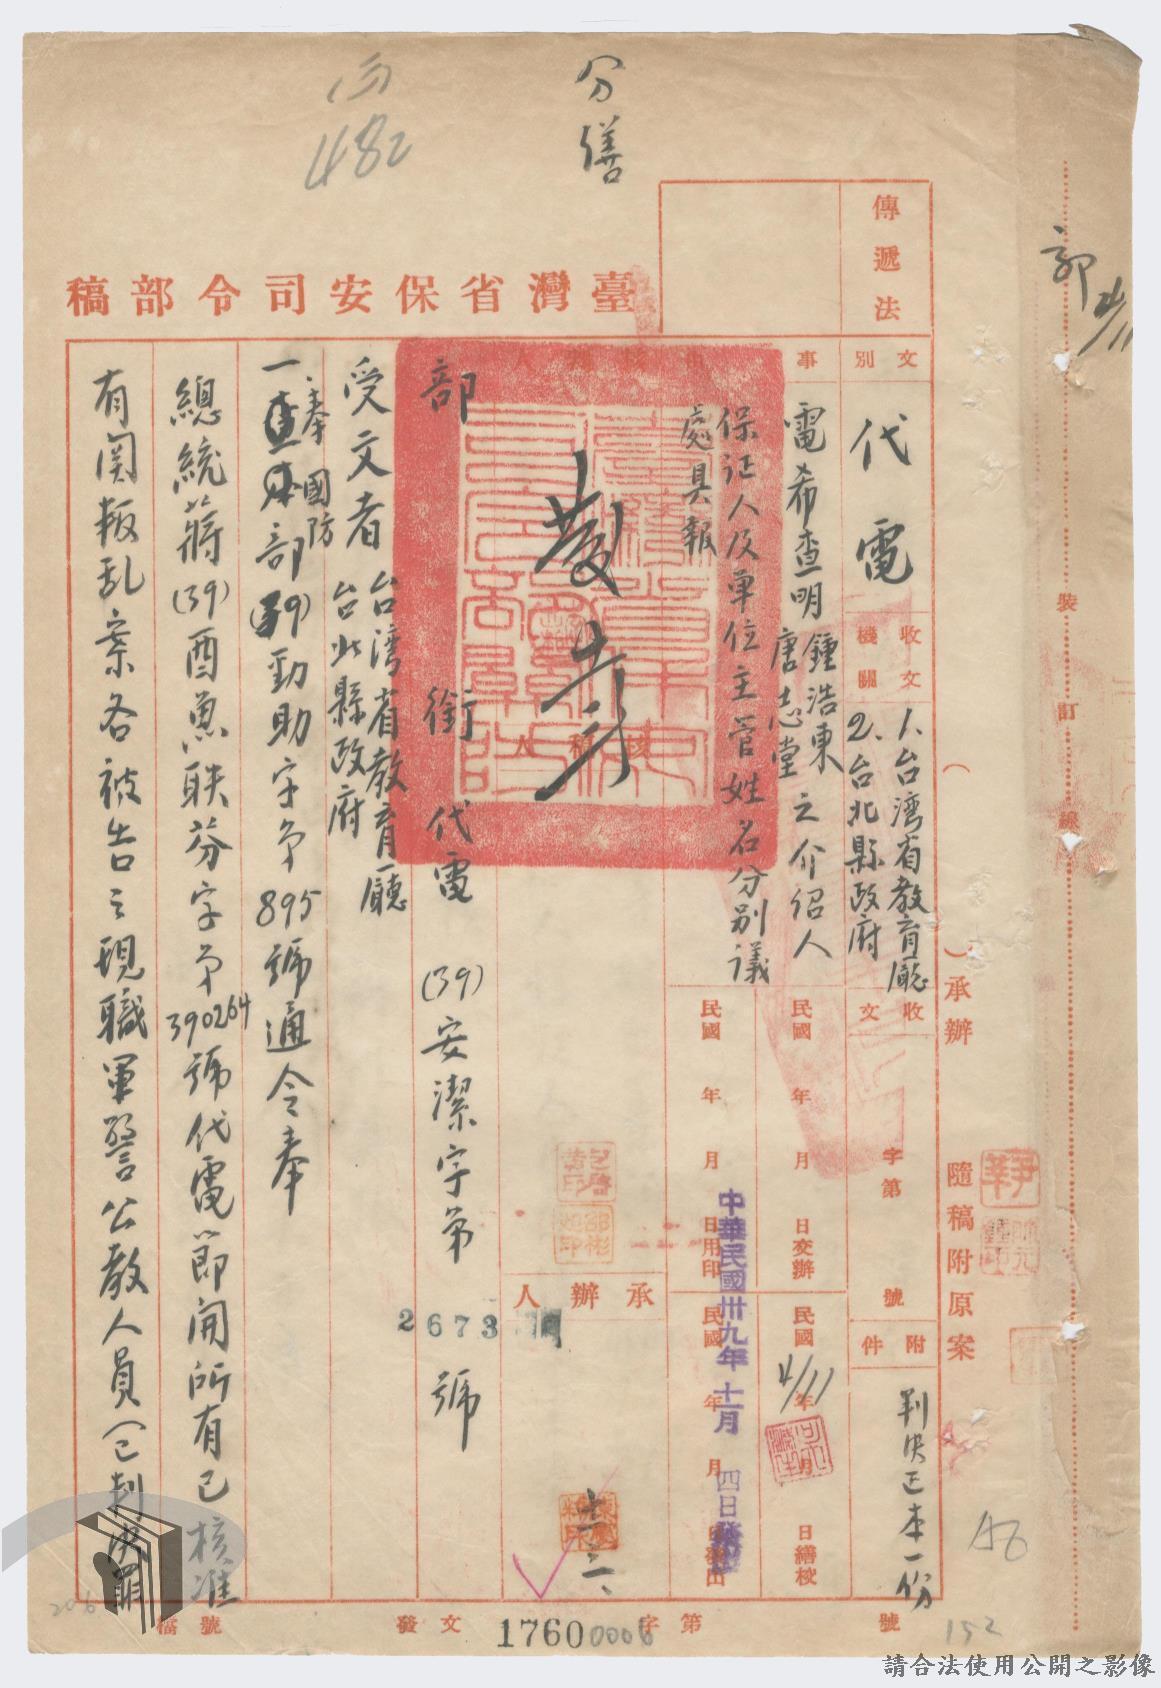 分繕
(三)
482
郭 4/11
傳遞法
臺灣省保安司令部稿
文別
代電
收文機關
1、台灣省教育廳
2、台北縣政府
收文
字第
號
附件
判決正本一份
事
電希查明鍾浩東
唐志堂
之介紹人
保证人及單位主管姓名分别議
處具報
民國 年 月 日交辦
民國 年 月 日用印
民國 年 月 日繕校
4/11
民國 年 月
中華民國卅九年十一月四日
承辦人
部銜代電 (39)安潔字第
2673
號
受文者
台湾省教育廳
台北縣政府
一、奉國防
部(39)勁助字第895號通令奉
總統蔣(39)酉魚联芬字第390264號代電節開所有已核准
有関叛乱案各被告之現職軍警公教人員(已判決罪
裝訂線
( )承辦
隨稿附原案
檔號
發文
字第
號
1760
0006
152
206
請合法使用公開之影像